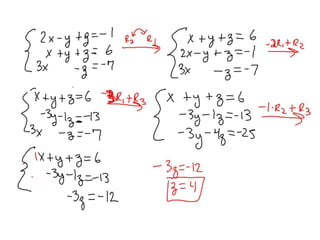 2x-y+z=-1
x+y+z=6
3x -z=-7
R₂ R₁
x+y+z=6
2x-y+z=-1
3x -z=-7
-2R₁+R₂
x+y+z=6
-3y-1z=-13
3x -z=-7
-3R₁+R₃
x+y+z=6
-3y-1z=-13
-3y-4z=-25
-1·R₂+R₃
1x+y+z=6
-3y-1z=-13
-3z=-12
-3z=-12
z=4